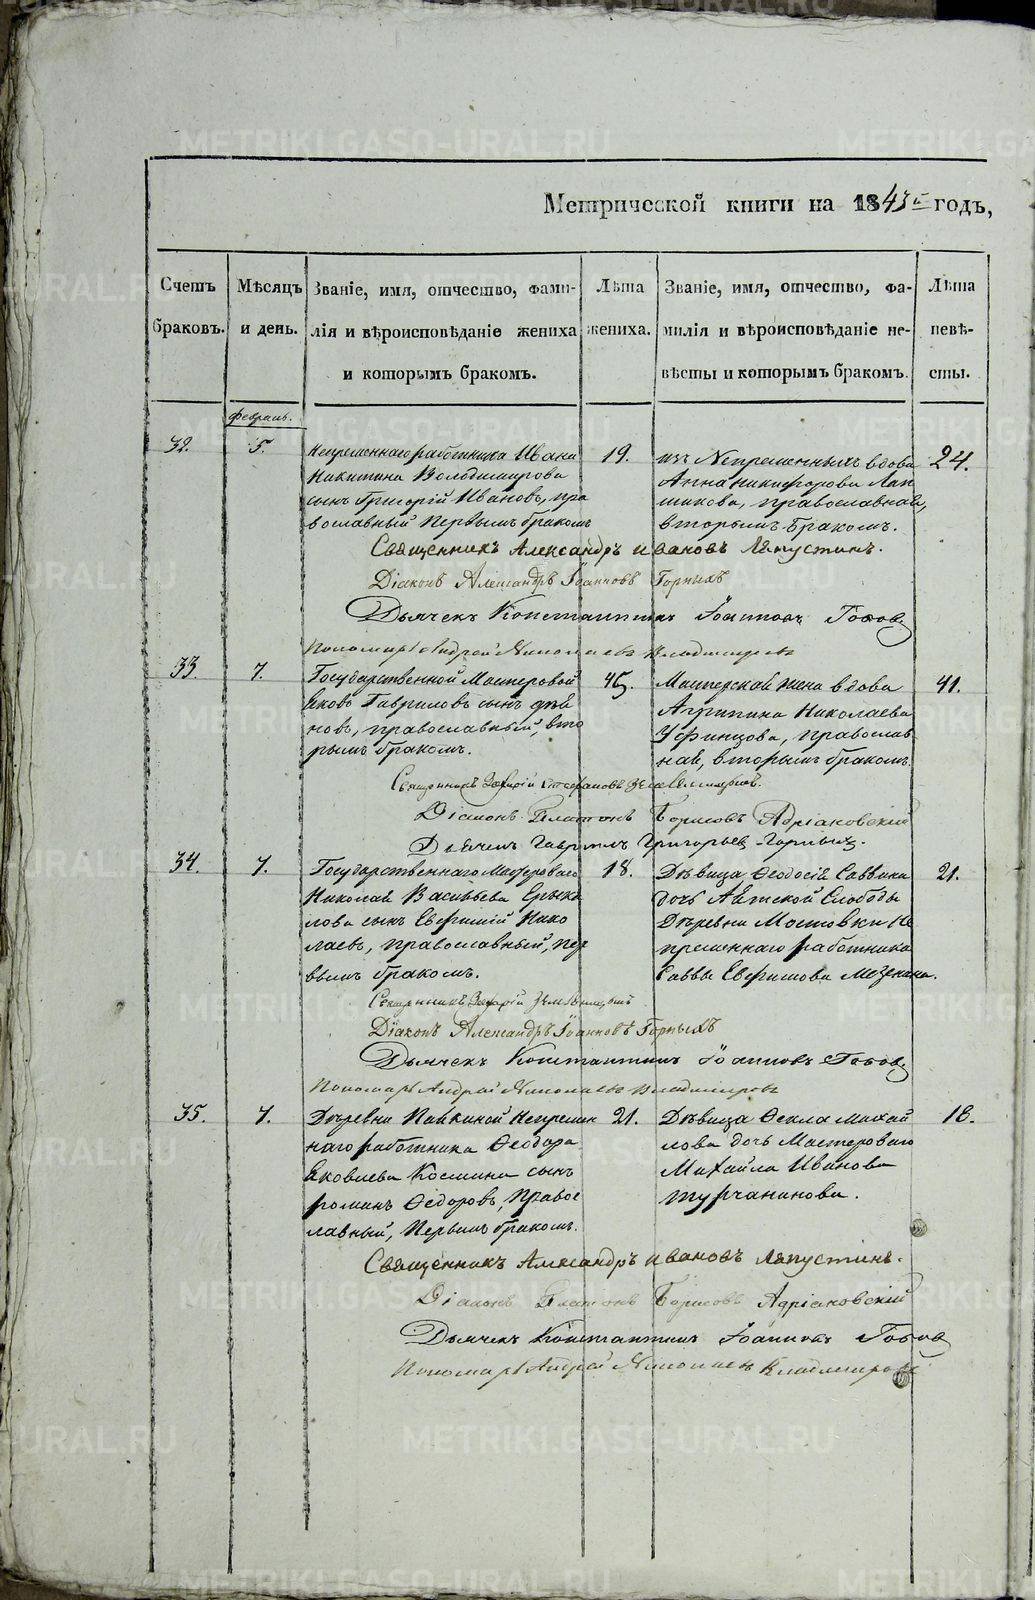 Метрической книги на 1843й годъ,
Счетъ
браковъ.
Мѣсяцъ
и день.
Званіе, имя, отчество, фами-
лія и вѣроисповѣданіе жениха
и которымъ бракомъ.
Лѣта
жениха.
Званіе, имя, отчество, фа-
милія и вѣроисповѣданіе не-
вѣсты и которымъ бракомъ.
Лѣта
невѣ-
сты.
Февраль.
32.
5.
Непременнаго работника Ивана
Никитина Волдимирова
сынъ Григорій Ивановъ, пра
вославный Первымъ бракомъ
19.
изъ Непременныхъ вдова
Анна Никифорова Лап
шикова, православная,
вторымъ бракомъ.
24.
Священникъ Александръ Ивановъ Ляпустинъ.
Діаконъ Александръ Іоанновъ Горныхъ
Дьячекъ Константинъ Іоанновъ
Пономарь Андрей Николаевъ Владимировъ
33.
7.
Государственной Мастеровой
Яковъ Гавриловъ сынъ
новъ, православный, вто
рымъ бракомъ.
45.
Мастерская жена вдова
Агрипина Николаева
Уфинцова, православ
ная, вторымъ бракомъ.
41.
Священникъ Захарій Стефановъ
Діаконъ Платонъ Борисовъ Адріановскій
Дьячекъ Гавриилъ Григорьевъ Горныхъ.
34.
7.
Государственнаго Мастероваго
Николая Васильева Ерыка
лова сынъ Евфимій Нико
лаевъ, православный, пер
вымъ бракомъ.
18.
Дѣвица Ѳеодосія Саввина
дочь Аятской Слободы
Деревни Мостовки Не
пременнаго работника
Саввы Евфимова Мезенина.
21.
Священникъ Захарій
Діаконъ Александръ Іоанновъ Горныхъ
Дьячекъ Константинъ Іоанновъ
Пономарь Андрей Николаевъ Владимировъ
35.
7.
Деревни Непремен
наго работника Ѳеодора
Яковлева Космина сынъ
Романъ Ѳедоровъ, Правос
лавный, Первымъ бракомъ.
21.
Дѣвица Ѳекла Михай
лова дочь Мастероваго
Михайла Иванова
Турчанинова.
18.
Священникъ Александръ Ивановъ Ляпустинъ.
Діаконъ Платонъ Борисовъ Адріановскій
Дьячекъ Константинъ Іоанновъ
Пономарь Андрей Николаевъ Владимировъ
METRIKI.GASO-URAL.RU